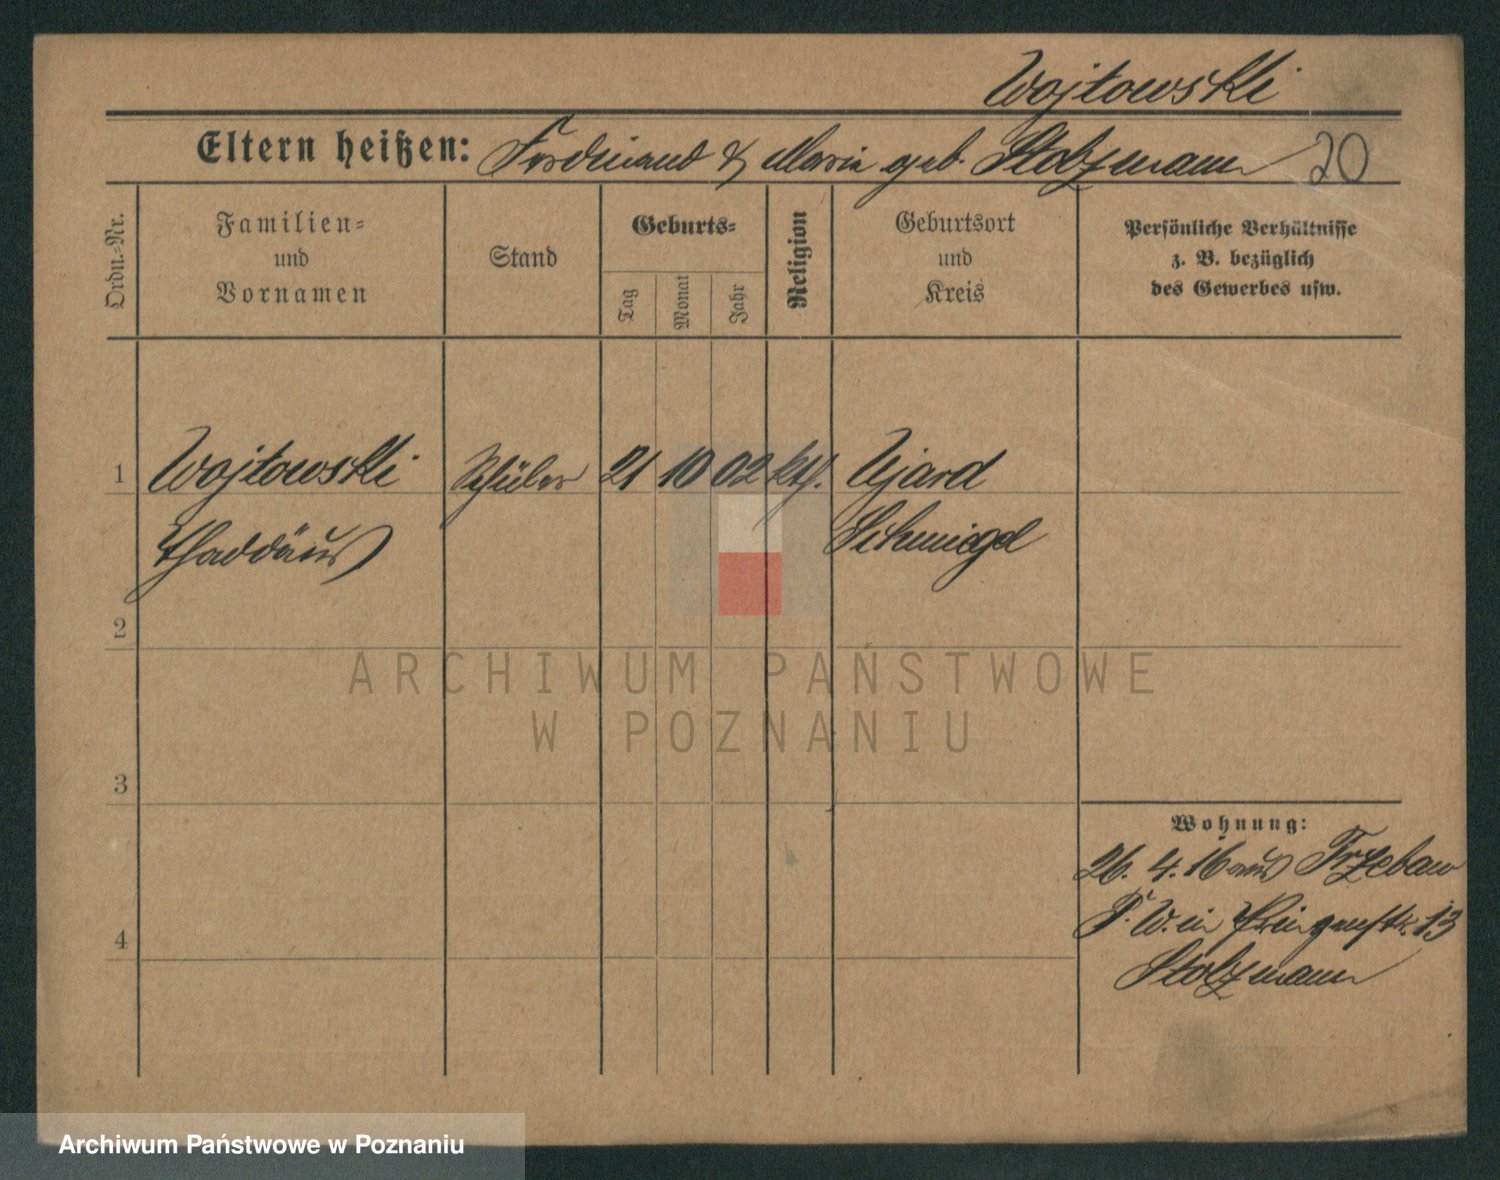 Wojtowski
Eltern heißen: Ferdinand & Maria geb. Stolzmann 20
Ordn.-Nr.
Familien-
und
Vornamen
Stand
Geburts-
Tag
Monat
Jahr
Religion
Geburtsort
und
Kreis
Persönliche Verhältnisse
z. B. bezüglich
des Gewerbes usw.
1 Wojtowski Schüler 21 10 02 kth. Ujard
Thaddäus Schmiegel
2
ARCHIWUM PAŃSTWOWE
W POZNANIU
3
Wohnung:
26. 4. 16 aus Trzebaw
P. W. in 13
4
Stolzmann
Archiwum Państwowe w Poznaniu